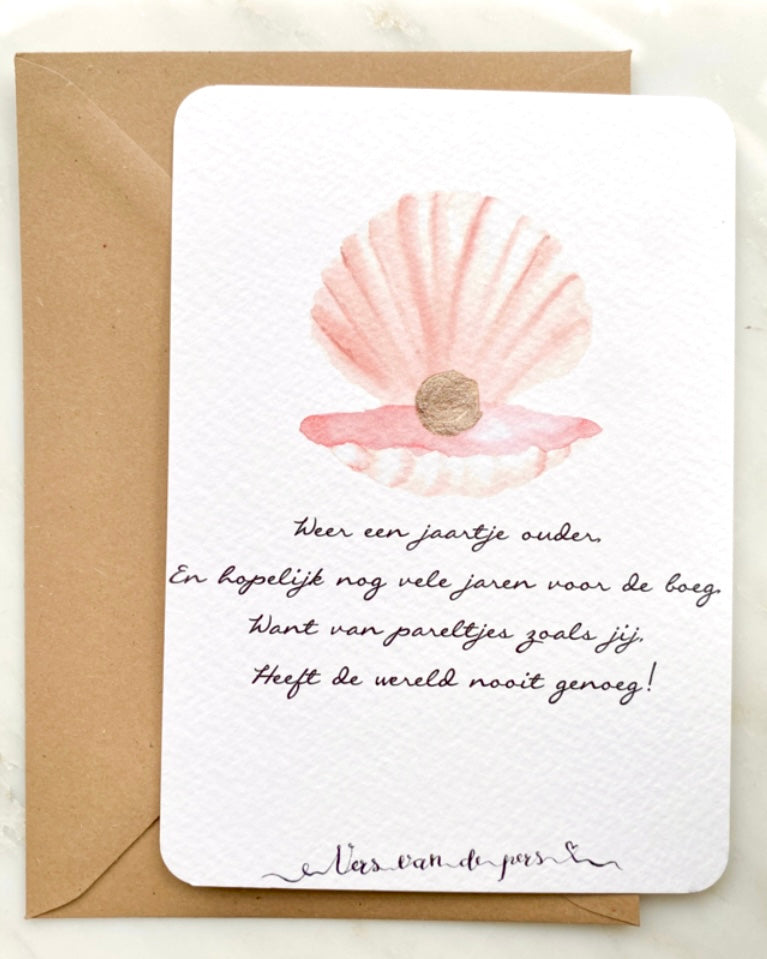 Weer een jaartje ouder.
En hopelijk nog vele jaren voor de boeg.
Want van pareltjes zoals jij.
Heeft de wereld nooit genoeg!
Vers van de pers